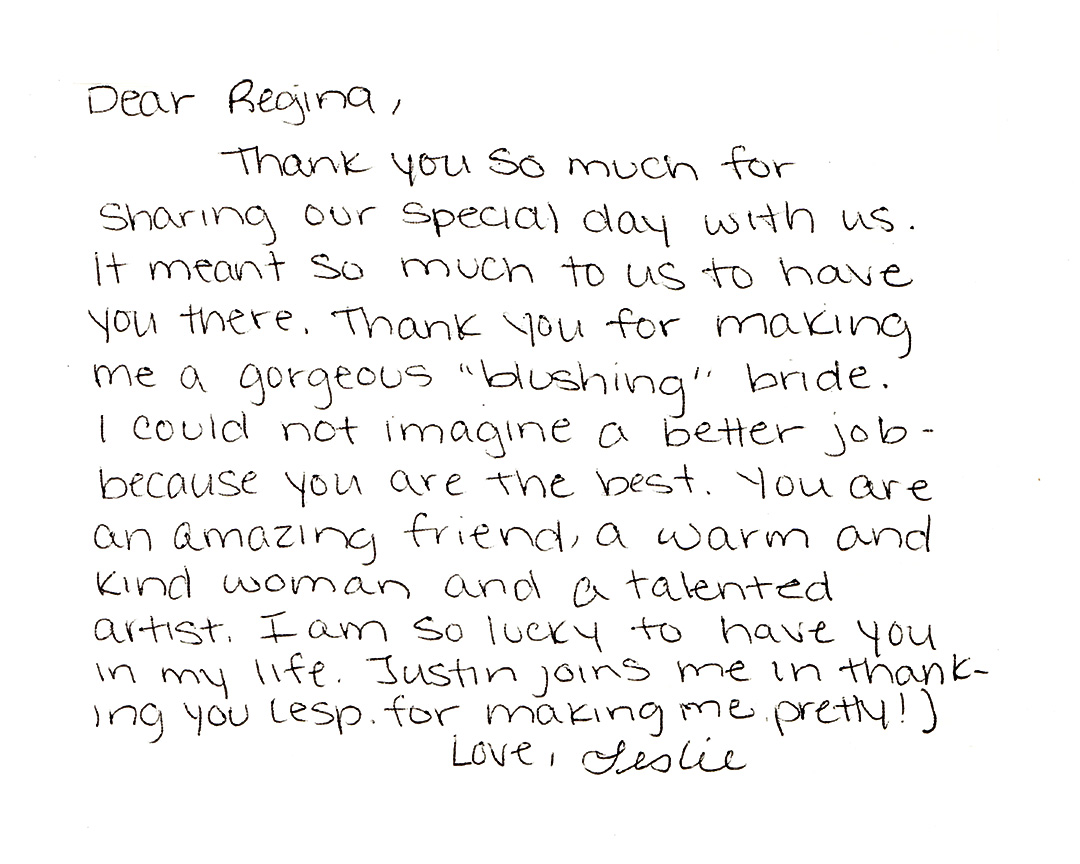 Dear Regina,
Thank you so much for
sharing our special day with us.
it meant so much to us to have
you there. Thank you for making
me a gorgeous "blushing" bride.
I could not imagine a better job-
because you are the best. You are
an amazing friend, a warm and
kind woman and a talented
artist. I am so lucky to have you
in my life. Justin joins me in thank-
ing you (esp. for making me pretty!)
Love, Leslie